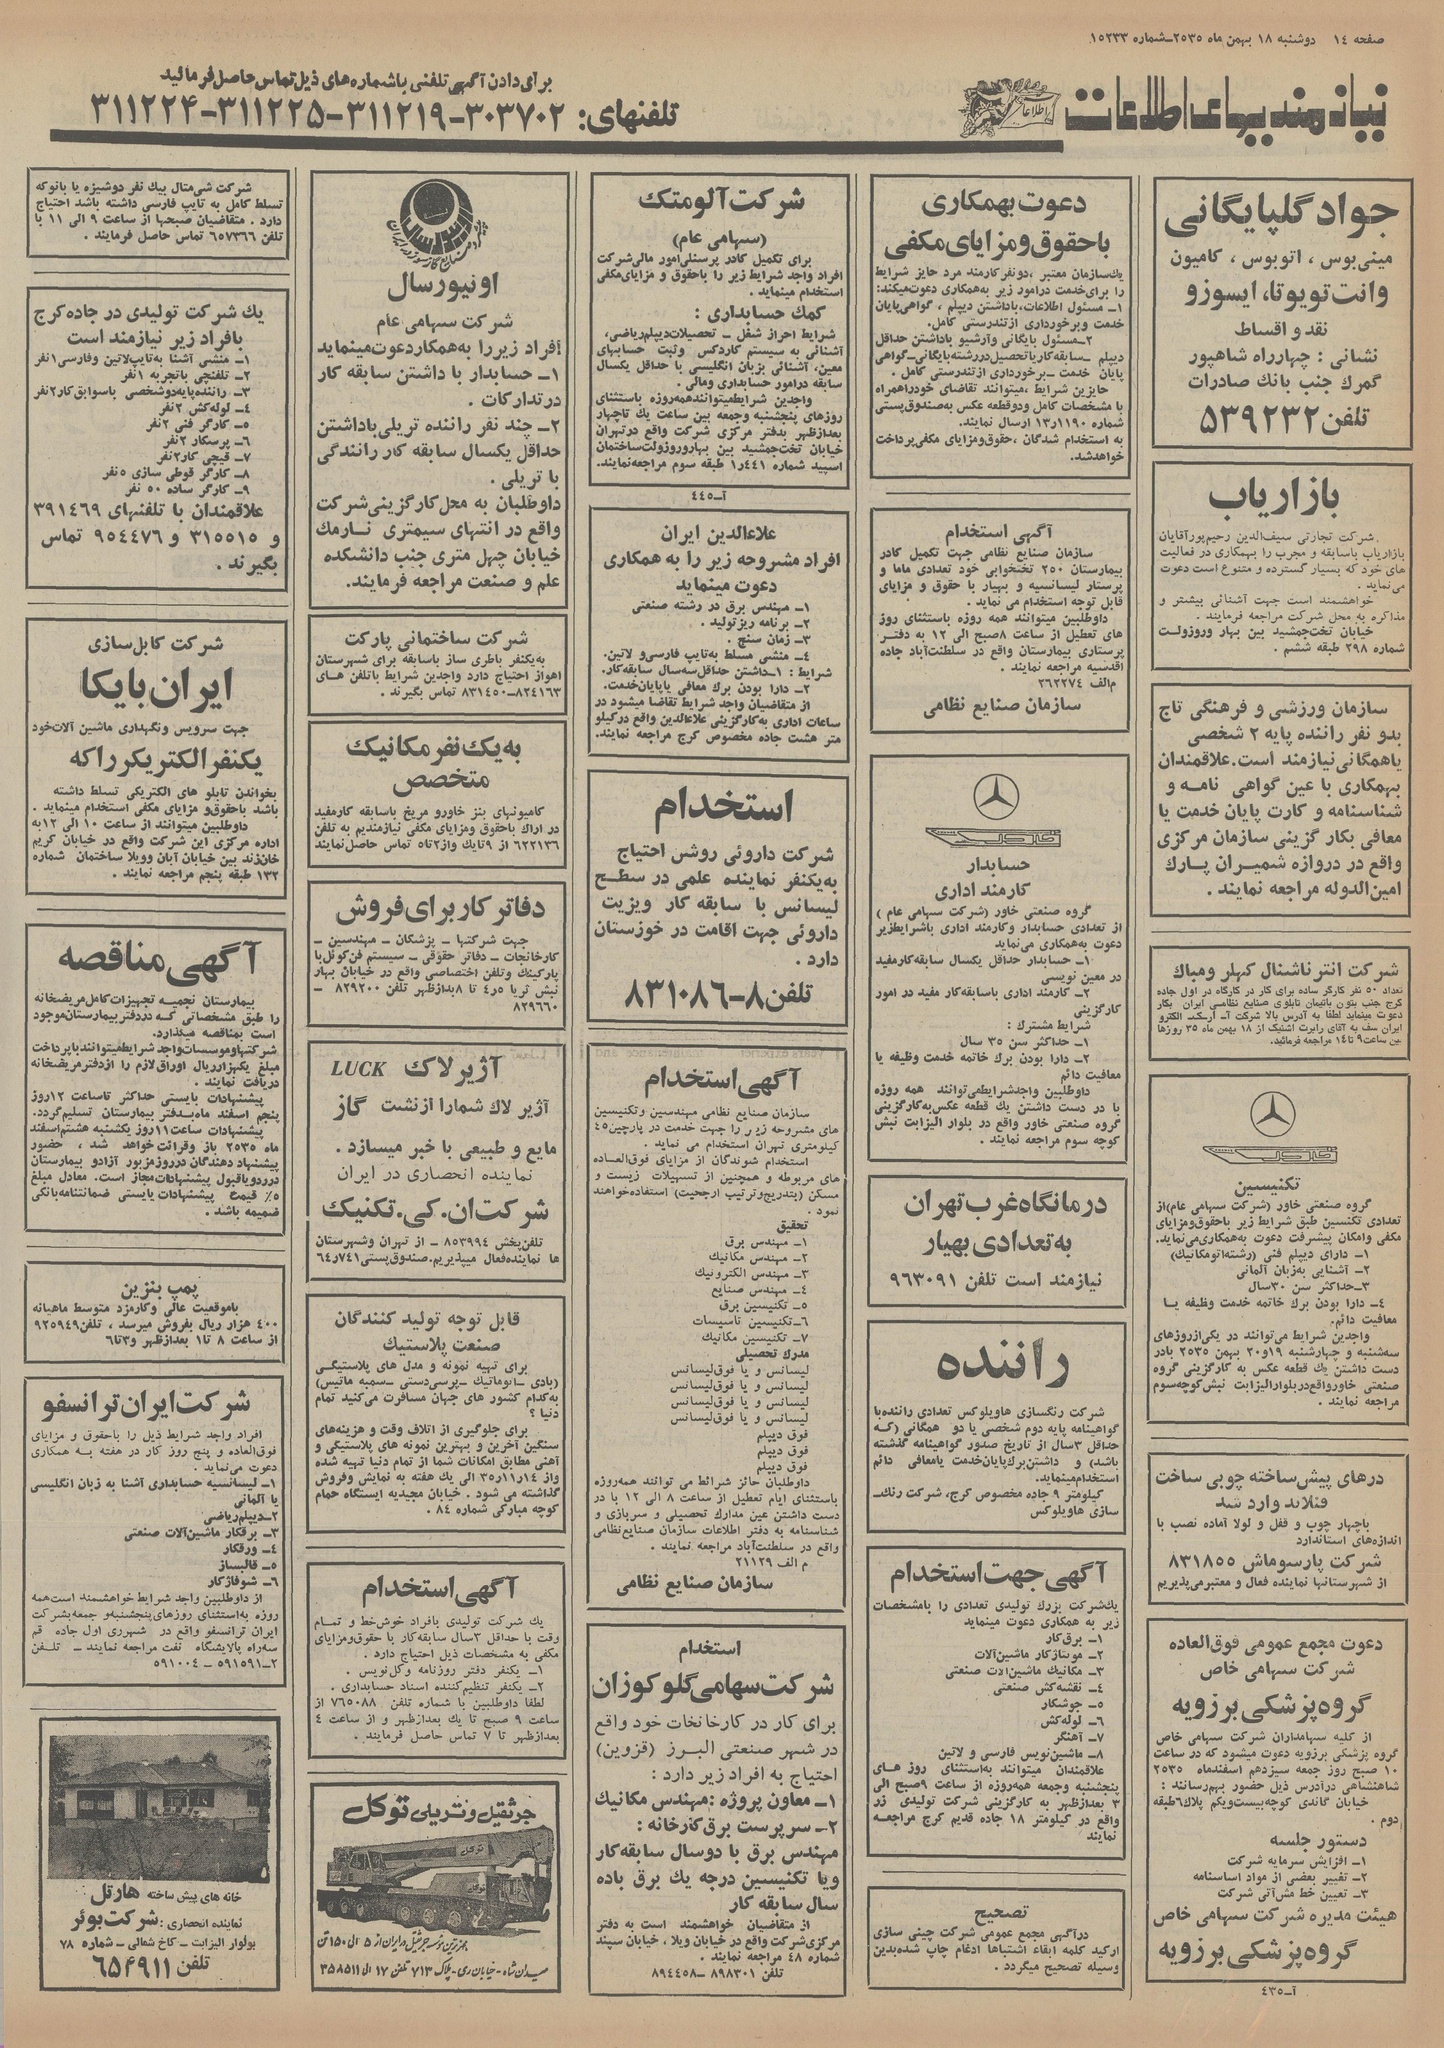 صفحه ۱۴ دوشنبه ۱۸ بهمن ماه ۲۵۳۵ـشماره ۱۵۲۳۳
نیازمندیهای اطلاعات
برای دادن آگهی تلفنی باشماره‌های ذیل تماس حاصل فرمائید
تلفنهای: ۳۰۳۷۰۲-۳۱۱۲۱۹-۳۱۱۲۲۵-۳۱۱۲۲۴
جواد گلپایگانی
مینی‌بوس ، اتوبوس ، کامیون
وانت تویوتا، ایسوزو
نقد و اقساط
نشانی : چهارراه شاهپور
گمرك جنب بانك صادرات
تلفن ۵۳۹۲۳۲
بازاریاب
شرکت تجارتی سیف‌الدین رحیم‌پورآقایان
بازاریاب باسابقه و مجرب را بهمکاری در فعالیت
های خود که بسیار گسترده و متنوع است دعوت
می‌نماید .
خواهشمند است جهت آشنائی بیشتر و
مذاکره به محل شرکت مراجعه فرمایند .
خیابان تخت‌جمشید بین بهار وروزولت
شماره ۲۹۸ طبقه ششم .
سازمان ورزشی و فرهنگی تاج
بدو نفر راننده پایه ۲ شخصی
یاهمگانی نیازمند است.علاقمندان
بهمکاری با عین گواهی نامه و
شناسنامه و کارت پایان خدمت یا
معافی بکار گزینی سازمان مرکزی
واقع در دروازه شمیران پارك
امین‌الدوله مراجعه نمایند .
شرکت انترناشنال کهلر ومباك
تعداد ۵۰ نفر کارگر ساده برای کار در کارگاه در اول جاده
کرج جنب بتون باتیمان تابلوی صنایع نظامی ایران بکار
دعوت مینماید لطفا به آدرس بالا شرکت آ. ارسکت الکترو
ایران سف به آقای رابرت اشنیک از ۱۸ بهمن ماه ۳۵ روزها
بین ساعت ۹ تا ۱۴ مراجعه فرمائید.
خاور
تکنیسین
گروه صنعتی خاور (شرکت سهامی عام)از
تعدادی تکنسین طبق شرایط زیر باحقوق‌ومزایای
مکفی وامکان پیشرفت دعوت به‌همکاری می‌نماید.
۱ـ دارای دیپلم فنی (رشته‌اتومکانیك)
۲ـ آشنایی به‌زبان آلمانی
۳ـحداکثر سن ۳۰سال
۴ـ دارا بودن برك خاتمه خدمت وظیفه یا
معافیت دائم.
واجدین شرایط می‌توانند در یکی‌ازروزهای
سه‌شنبه و چهارشنبه ۱۹و۲۰ بهمن ۲۵۳۵ بادر
دست داشتن یك قطعه عکس به کارگزینی گروه
صنعتی خاورواقع‌دربلوارالیزابت نبش‌کوچه‌سوم
مراجعه نمایند .
درهای پیش‌ساخته چوبی ساخت
فنلاند وارد شد
باچهار چوب و قفل و لولا آماده نصب با
اندازه‌های استاندارد
شرکت پارسوماش ۸۳۱۸۵۵
از شهرستانها نماینده فعال و معتبرمی‌پذیریم
دعوت مجمع عمومی فوق‌العاده
شرکت سهامی خاص
گروه‌پزشکی برزویه
از کلیه سهامداران شرکت سهامی خاص
گروه پزشکی برزویه دعوت میشود که در ساعت
۱۰ صبح روز جمعه سیزدهم اسفندماه ۲۵۳۵
شاهنشاهی درآدرس ذیل حضور بهم‌رسانند :
خیابان گاندی کوچه‌بیست‌ویکم پلاك۶طبقه
دوم .
دستور جلسه
۱ـ افزایش سرمایه شرکت
۲ـ تغییر بعضی از مواد اساسنامه
۳ـ تعیین خط مش‌آتی شرکت
هیئت مدیره شرکت سهامی خاص
گروه‌پزشکی برزویه
آـ۴۳۵
دعوت بهمکاری
باحقوق‌ومزایای مکفی
یك‌سازمان معتبر ،دونفرکارمند مرد حایز شرایط
را برای‌خدمت درامور زیر به‌همکاری دعوت‌میکند:
۱ـ مسئول اطلاعات،باداشتن دیپلم ، گواهی‌پایان
خدمت وبرخورداری ازتندرستی کامل.
۲ـمسئول بایگانی وآرشیو باداشتن حداقل
دیپلم ـسابقه‌کاریاتحصیل‌دررشته‌بایگانی‌ـگواهی
پایان خدمت ـبرخورداری ازتندرستی کامل .
حایزین شرایط ،میتوانند تقاضای خودراهمراه
با مشخصات کامل ودوقطعه عکس به‌صندوق‌پستی
شماره ۱۱۹۰ر۱۳ ارسال نمایند.
به استخدام شدگان ،حقوق‌ومزایای مکفی‌پرداخت
خواهدشد.
آگهی استخدام
سازمان صنایع نظامی جهت تکمیل کادر
بیمارستان ۲۵۰ تختخوابی خود تعدادی ماما و
پرستار لیسانسیه و بهیار با حقوق و مزایای
قابل توجه استخدام می نماید .
داوطلبین میتوانند همه روزه باستثنای روز
های تعطیل از ساعت ۸صبح الی ۱۲ به دفتر
پرستاری بیمارستان واقع در سلطنت‌آباد جاده
اقدسیه مراجعه نمایند .
م‌الف ۲۶۲۲۷۴
سازمان صنایع نظامی
خاور
حسابدار
کارمند اداری
گروه صنعتی خاور (شرکت سهامی عام )
از تعدادی حسابدار وکارمند اداری باشرایط‌زیر
دعوت به‌همکاری می‌نماید
۱ـ حسابدار حداقل یکسال سابقه‌کارمفید
در معین نویسی
۲ـ کارمند اداری باسابقه‌کار مفید در امور
کارگزینی
شرایط مشترك :
۱ـ حداکثر سن ۳۵ سال
۲ـ دارا بودن برك خاتمه خدمت وظیفه یا
معافیت دائم
داوطلبین واجدشرایط‌می‌توانند همه روزه
با در دست داشتن یك قطعه عکس‌به‌کارگزینی
گروه صنعتی خاور واقع در بلوار الیزابت نبش
کوچه سوم مراجعه نمایند .
درمانگاه‌غرب تهران
به‌تعدادی بهیار
نیازمند است تلفن ۹۶۳۰۹۱
راننده
شرکت رنگسازی هاویلوکس تعدادی راننده‌با
گواهینامه پایه دوم شخصی یا دو همگانی (که
حداقل ۳سال از تاریخ صدور گواهینامه گذشته
باشد) و داشتن‌برك‌پایان‌خدمت یامعافی دائم
استخدام‌مینماید.
کیلومتر ۹ جاده مخصوص کرج، شرکت رنگ‌ـ
سازی هاویلوکس
آگهی جهت استخدام
یك‌شرکت بزرك تولیدی تعدادی را بامشخصات
زیر به همکاری دعوت مینماید
۱ـ برق‌کار
۲ـ مونتاژکار ماشین‌آلات
۳ـ مکانیك ماشین‌آلات صنعتی
۴ـ نقشه‌کش صنعتی
۵ـ جوشکار
۶ـ لوله‌کش
۷ـ آهنگر
۸ـ ماشین‌نویس فارسی و لاتین
علاقمندان میتوانند به‌استثنای روز های
پنجشنبه وجمعه همه‌روزه از ساعت ۹صبح الی
۳ بعدازظهر به کارگزینی شرکت تولیدی زر
واقع در کیلومتر ۱۸ جاده قدیم کرج مراجعه
نمایند
تصحیح
درآگهی مجمع عمومی شرکت چینی سازی
ارکید کلمه ابقاء اشتباها ادغام چاپ شده‌بدین
وسیله تصحیح میگردد .
شرکت آلومتك
(سهامی عام)
برای تکمیل کادر پرسنلی‌امور مالی‌شرکت
افراد واجد شرایط زیر را باحقوق و مزایای‌مکفی
استخدام مینماید .
کمك حسابداری :
شرایط احراز شغل ـ تحصیلات‌دیپلم‌ریاضی،
آشنائی به سیستم کاردکس وثبت حسابهای
معین، آشنائی بزبان انگلیسی با حداقل یکسال
سابقه درامور حسابداری ومالی .
واجدین شرایط‌میتوانندهمه‌روزه باستثنای
روزهای پنجشنبه وجمعه بین ساعت یك تاچهار
بعدازظهر بدفتر مرکزی شرکت واقع درتهران
خیابان تخت‌جمشید بین بهاروروزولت‌ساختمان
اسپید شماره ۴۴۱ر۱ طبقه سوم مراجعه‌نمایند.
آـ۴۴۵
علاءالدین ایران
افراد مشروحه زیر را به همکاری
دعوت مینماید
۱ـ مهندس برق در رشته صنعتی
۲ـ برنامه ریزتولید .
۳ـ زمان سنج .
۴ـ منشی مسلط به‌تایپ فارسی‌و لاتین.
شرایط : ۱ـداشتن حداقل‌سه‌سال سابقه‌کار.
۲ـ دارا بودن برك معافی یاپایان‌خدمت.
از متقاضیان واجد شرایط تقاضا میشود در
ساعات اداری به‌کارگزینی علاءالدین واقع درکیلو
متر هشت جاده مخصوص کرج مراجعه نمایند.
استخدام
شرکت داروئی روشس احتیاج
به‌یکنفر نماینده علمی در سطح
لیسانس با سابقه کار ویزیت
داروئی جهت اقامت در خوزستان
دارد .
تلفن ۸-۸۳۱۰۸۶
آگهی استخدام
سازمان صنایع نظامی مهندسین وتکنیسین
های مشروحه زیر را جهت خدمت در پارچین۴۵
کیلومتری تهران استخدام می نماید .
استخدام شوندگان از مزایای فوق‌العاده
های مربوطه و همچنین از تسهیلات زیست و
مسکن (بتدریج‌وترتیب ارجحیت) استفاده‌خواهند
نمود .
تحقیق
۱ـ مهندس برق
۲ـ مهندس مکانیك
۳ـ مهندس الکترونیك
۴ـ مهندس صنایع
۵ـ تکنیسین برق
۶ـتکنیسین تاسیسات
۷ـ تکنیسین مکانیك
مدرك تحصیلی
لیسانس و یا فوق‌لیسانس
لیسانس و یا فوق‌لیسانس
لیسانس و یا فوق‌لیسانس
لیسانس و یا فوق‌لیسانس
فوق دیپلم
فوق دیپلم
فوق دیپلم
داوطلبان حائز شرائط می توانند همه‌روزه
باستثنای ایام تعطیل از ساعت ۸ الی ۱۲ با در
دست داشتن عین مدارك تحصیلی و سربازی و
شناسنامه به دفتر اطلاعات سازمان صنایع‌نظامی
واقع در سلطنت‌آباد مراجعه نمایند .
م الف ۲۱۱۲۹
سازمان صنایع نظامی
استخدام
شرکت‌سهامی گلوکوزان
برای کار در کارخانجات خود واقع
در شهر صنعتی البرز (قزوین)
احتیاج به افراد زیر دارد :
۱ـ معاون پروژه :مهندس مکانیك
۲ـ سرپرست برق‌کارخانه :
مهندس برق با دوسال سابقه‌کار
ویا تکنیسین درجه یك برق باده
سال سابقه کار
از متقاضیان خواهشمند است به دفتر
مرکزی‌شرکت واقع در خیابان ویلا ، خیابان سپند
شماره ۴۸ مراجعه نمایند .
تلفن ۸۹۸۳۰۱ ـ۸۹۴۴۵۸
اونیورسال
شرکت سهامی عام
افراد زیررا به‌همکاردعوت‌مینماید
۱ـ حسابدار با داشتن سابقه کار
درتدارکات .
۲ـ چند نفر راننده تریلی‌باداشتن
حداقل یکسال سابقه کار رانندگی
با تریلی .
داوطلبان به محل‌کارگزینی‌شرکت
واقع در انتهای سیمتری نارمك
خیابان چهل متری جنب دانشکده
علم و صنعت مراجعه فرمایند.
شرکت ساختمانی پارکت
به‌یکنفر باطری ساز باسابقه برای شهرستان
اهواز احتیاج دارد واجدین شرایط باتلفن های
۸۲۴۱۶۳ـ۸۳۱۴۵۰ تماس بگیرند .
به‌یك‌نفرمکانیك
متخصص
کامیونهای بنز خاورو مریخ باسابقه کارمفید
در اراك باحقوق ومزایای مکفی نیازمندیم به تلفن
۶۲۲۱۳۶ از ۹تایك واز۲تا۵ تماس حاصل‌نمایند
دفاترکاربرای‌فروش
جهت شرکتها ـ پزشکان ـ مهندسین ـ
کارخانجات ـ دفاتر حقوقی ـ سیستم فن‌کوئل‌با
پارکینك وتلفن اختصاصی واقع در خیابان بهار
نبش ثریا ۵ر۴ تا ۸بعدازظهر تلفن ۸۲۹۲۰۰ ـ
۸۲۹۶۶۰
آژیرلاک LUCK
آژیر لاك شمارا ازنشت گاز
مایع و طبیعی با خبر میسازد .
نماینده انحصاری در ایران
شرکت‌ان.کی.تکنیك
تلفن‌پخش ۸۵۳۹۹۴ ـ از تهران وشهرستان
ها نماینده‌فعال میپذیریم.صندوق‌پستی۷۴۱ر۶۴
قابل توجه تولید کنندگان
صنعت پلاستیك
برای تهیه نمونه و مدل های پلاستیکی
(بادی ـ اتوماتیك ـپرسی‌دستی ـسمبه ماتیس)
به‌کدام کشور های جهان مسافرت می‌کنید تمام
دنیا ؟
برای جلوگیری از اتلاف وقت و هزینه‌های
سنگین آخرین و بهترین نمونه های پلاستیکی و
آهنی مطابق امکانات شما از تمام دنیا تهیه شده
واز ۱۴ر۱۱ر۳۵ الی یك هفته به نمایش وفروش
گذاشته می شود . خیابان مجیدیه ایستگاه حمام
کوچه مبارکی شماره ۸۴ .
آگهی استخدام
یك شرکت تولیدی بافراد خوش‌خط و تمام
وقت با حداقل ۳سال سابقه‌کار با حقوق‌ومزایای
مکفی به مشخصات ذیل احتیاج دارد .
۱ـ یکنفر دفتر روزنامه وکل‌نویس .
۲ـ یکنفر تنظیم‌کننده اسناد حسابداری .
لطفا داوطلبین با شماره تلفن ۷۶۵۰۸۸ از
ساعت ۹ صبح تا یك بعدازظهر و از ساعت ۴
بعدازظهر تا ۷ تماس حاصل فرمایند .
جرثقیل و تریلی توکل
توکل
مجهزترین مؤسسه جرثقیل در ایران از ۵ الی ۱۵۰ تن
میدان شاه - خیابان ری - پلاک ۷۱۳ تلفن ۱۷ الی ۳۵۸۵۱۱
شرکت شی‌متال بیك نفر دوشیزه یا بانوکه
تسلط کامل به تایپ فارسی داشته باشد احتیاج
دارد . متقاضیان صبحها از ساعت ۹ الی ۱۱ با
تلفن ۶۵۷۳۶۶ تماس حاصل فرمایند .
یك شرکت تولیدی در جاده‌کرج
بافراد زیر نیازمند است
۱ـ منشی آشنا به‌تایپ‌لاتین وفارسی۱نفر
۲ـ تلفنچی باتجربه ۱نفر
۳ـ راننده‌پایه‌دوشخصی باسوابق‌کار۲نفر
۴ـ لوله‌کش ۲نفر
۵ـ کارگر فنی ۲نفر
۶ـ پرسکار ۲نفر
۷ـ قیچی کار۲نفر
۸ـ کارگر قوطی سازی ۵نفر
۹ـ کارگر ساده ۵۰ نفر
علاقمندان با تلفنهای ۳۹۱۴۶۹
و ۳۱۵۵۱۵ و ۹۵۴۴۷۶ تماس
بگیرند .
شرکت کابل‌سازی
ایران‌بایکا
جهت سرویس ونگهداری ماشین آلات‌خود
یکنفرالکتریکر راکه
بخواندن تابلو های الکتریکی تسلط داشته
باشد باحقوق‌و مزایای مکفی استخدام مینماید .
داوطلبین میتوانند از ساعت ۱۰ الی ۱۲به
اداره مرکزی این شرکت واقع در خیابان کریم
خان‌زند بین خیابان آبان وویلا ساختمان شماره
۱۳۲ طبقه پنجم مراجعه نمایند .
آگهی‌مناقصه
بیمارستان نجمیه تجهیزات‌کامل‌مریضخانه
را طبق مشخصاتی که دردفتربیمارستان‌موجود
است بمناقصه میگذارد.
شرکتهاوموسسات‌واجدشرایط‌میتوانندباپرداخت
مبلغ یکهزارریال اوراق‌لازم را ازدفترمریضخانه
دریافت نمایند .
پیشنهادات بایستی حداکثر تاساعت ۱۲روز
پنجم اسفند ماه‌بدفتر بیمارستان تسلیم‌گردد.
پیشنهادات ساعت۱۱روز یکشنبه هشتم‌اسفند
ماه ۲۵۳۵ باز وقرائت خواهد شد ، حضور
پیشنهاد دهندگان درروزمزبور آزادو بیمارستان
درردویاقبول پیشنهادات‌مجاز است. معادل مبلغ
۵٪ قیمت پیشنهادات بایستی ضمانتنامه‌بانکی
ضمیمه باشد .
پمپ بنزین
باموقعیت عالی وکارمزد متوسط ماهیانه
۴۰۰ هزار ریال بفروش میرسد ، تلفن۹۲۵۹۴۹
از ساعت ۸ تا۱ بعدازظهر و۳تا۶
شرکت‌ایران‌ترانسفو
افراد واجد شرایط ذیل را باحقوق و مزایای
فوق‌العاده و پنج روز کار در هفته به همکاری
دعوت می‌نماید .
۱ـ لیسانسیه حسابداری آشنا به زبان انگلیسی
یا آلمانی
۲ـدیپلم‌ریاضی
۳ـ برقکار ماشین‌آلات صنعتی
۴ـ ورقکار
۵ـ قالبساز
۶ـ شوفاژکار
از داوطلبین واجد شرایط خواهشمند است‌همه
روزه به‌استثنای روزهای‌پنجشنبه‌و جمعه‌بشرکت
ایران ترانسفو واقع در شهرری اول جاده قم
سه‌راه پالایشگاه نفت مراجعه نمایند ـ تلفن
۲ـ۵۹۱۵۹۱ ـ ۵۹۱۰۰۴
خانه های پیش ساخته هارتل
نماینده انحصاری : شرکت بوئر
بولوار الیزابت - کاخ شمالی - شماره ۷۸
تلفن ۶۵۴۹۱۱